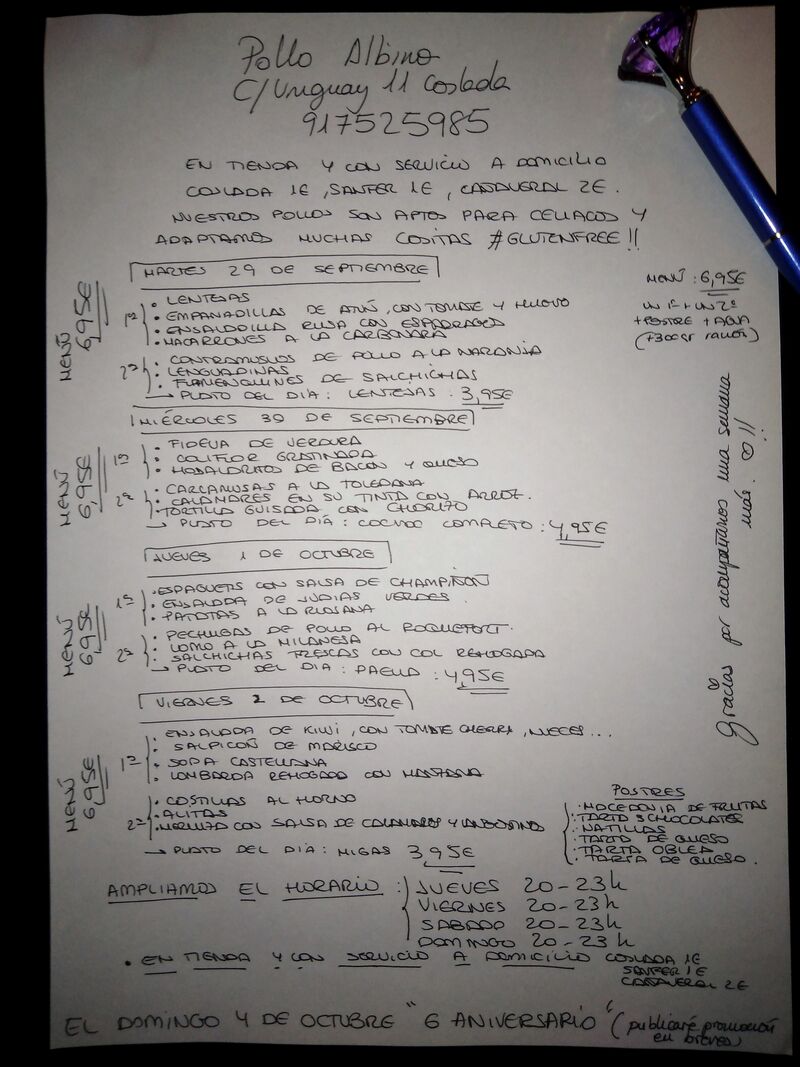 Pollo Albino
C/ Uruguay 11 Coslada
917525985
EN TIENDA Y CON SERVICIO A DOMICILIO
COSLADA 1E, SANFER 1E, CAÑAVERAL 2E.
NUESTROS POLLOS SON APTOS PARA CELIACOS Y
ADAPTAMOS MUCHAS COSITAS #GLUTENFREE!!
MARTES 29 DE SEPTIEMBRE
MENÚ 6,95E
1º
· LENTEJAS
· EMPANADILLAS DE ATÚN, CON TOMATE Y HUEVO
· ENSALADILLA RUSA CON ESPÁRRAGOS
· MACARRONES A LA CARBONARA
2º
· CONTRAMUSLOS DE POLLO A LA NARANJA
· LENGUADINAS
· FLAMENQUINES DE SALCHICHAS
→ PLATO DEL DÍA: LENTEJAS: 3,95E
MENÚ: 6,95E
UN 1º + UN 2º
+ POSTRE + AGUA
MIÉRCOLES 30 DE SEPTIEMBRE
MENÚ 6,95E
1º
· FIDEUA DE VERDURA
· COLIFLOR GRATINADA
· HOJALDRITOS DE BACON Y QUESO
2º
· CARCAMUSAS A LA TOLEDANA
· CALAMARES EN SU TINTA CON ARROZ.
· TORTILLA GUISADA CON CHORIZO
→ PLATO DEL DÍA: COCIDO COMPLETO: 4,95E
JUEVES 1 DE OCTUBRE
MENÚ 6,95E
1º
· ESPAGUETIS CON SALSA DE CHAMPIÑÓN
· ENSALADA DE JUDIAS VERDES.
· PATATAS A LA RIOJANA
2º
· PECHUGAS DE POLLO AL ROQUEFORT.
· LOMO A LA MILANESA
· SALCHICHAS FRESCAS CON COL REHOGADA
→ PLATO DEL DÍA: PAELLA: 4,95E
VIERNES 2 DE OCTUBRE
MENÚ 6,95E
1º
· ENSALADA DE KIWI, CON TOMATE CHERRY, NUECES...
· SALPICÓN DE MARISCO
· SOPA CASTELLANA
· LOMBARDA REHOGADA CON MANZANA
2º
· COSTILLAS AL HORNO
· ALITAS
· MERLUZA CON SALSA DE CALAMARES Y LANGOSTINOS
→ PLATO DEL DÍA: MIGAS 3,95E
Gracias por acompañarnos una semana
más. !!
POSTRES
· MACEDONIA DE FRUTAS
· TARTA 3 CHOCOLATES
· NATILLAS
· TARTA DE QUESO
· TARTA OBLEA
· TARTA DE QUESO.
AMPLIAMOS EL HORARIO:
JUEVES 20-23h
VIERNES 20-23h
SABADO 20-23h
DOMINGO 20-23h
· EN TIENDA Y CON SERVICIO A DOMICILIO COSLADA 1E
SANFER 1E
CAÑAVERAL 2E
EL DOMINGO 4 DE OCTUBRE "6 ANIVERSARIO" (publicaré promoción
en breves)